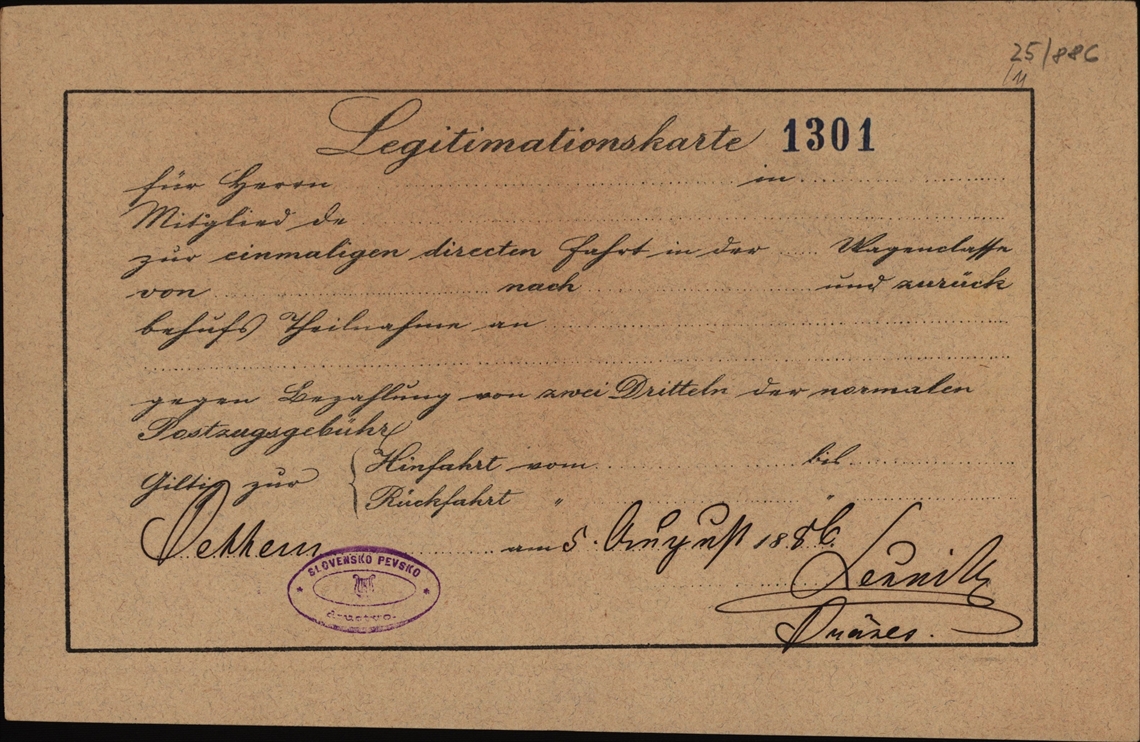 25/886
11
Legitimationskarte 1301
für Herrn in
Mitglied de
zur einmaligen directen Fahrt in der Wagenclasse
von nach und zurück
behufs Theilnahme an
gegen Bezahlung von zwei Dritteln der normalen
Postzugsgebühr
Giltig zur { Hinfahrt vom bis
Rückfahrt " "
am 5. August 1886
SLOVENSKO PEVSKO
društvo.
Präses.